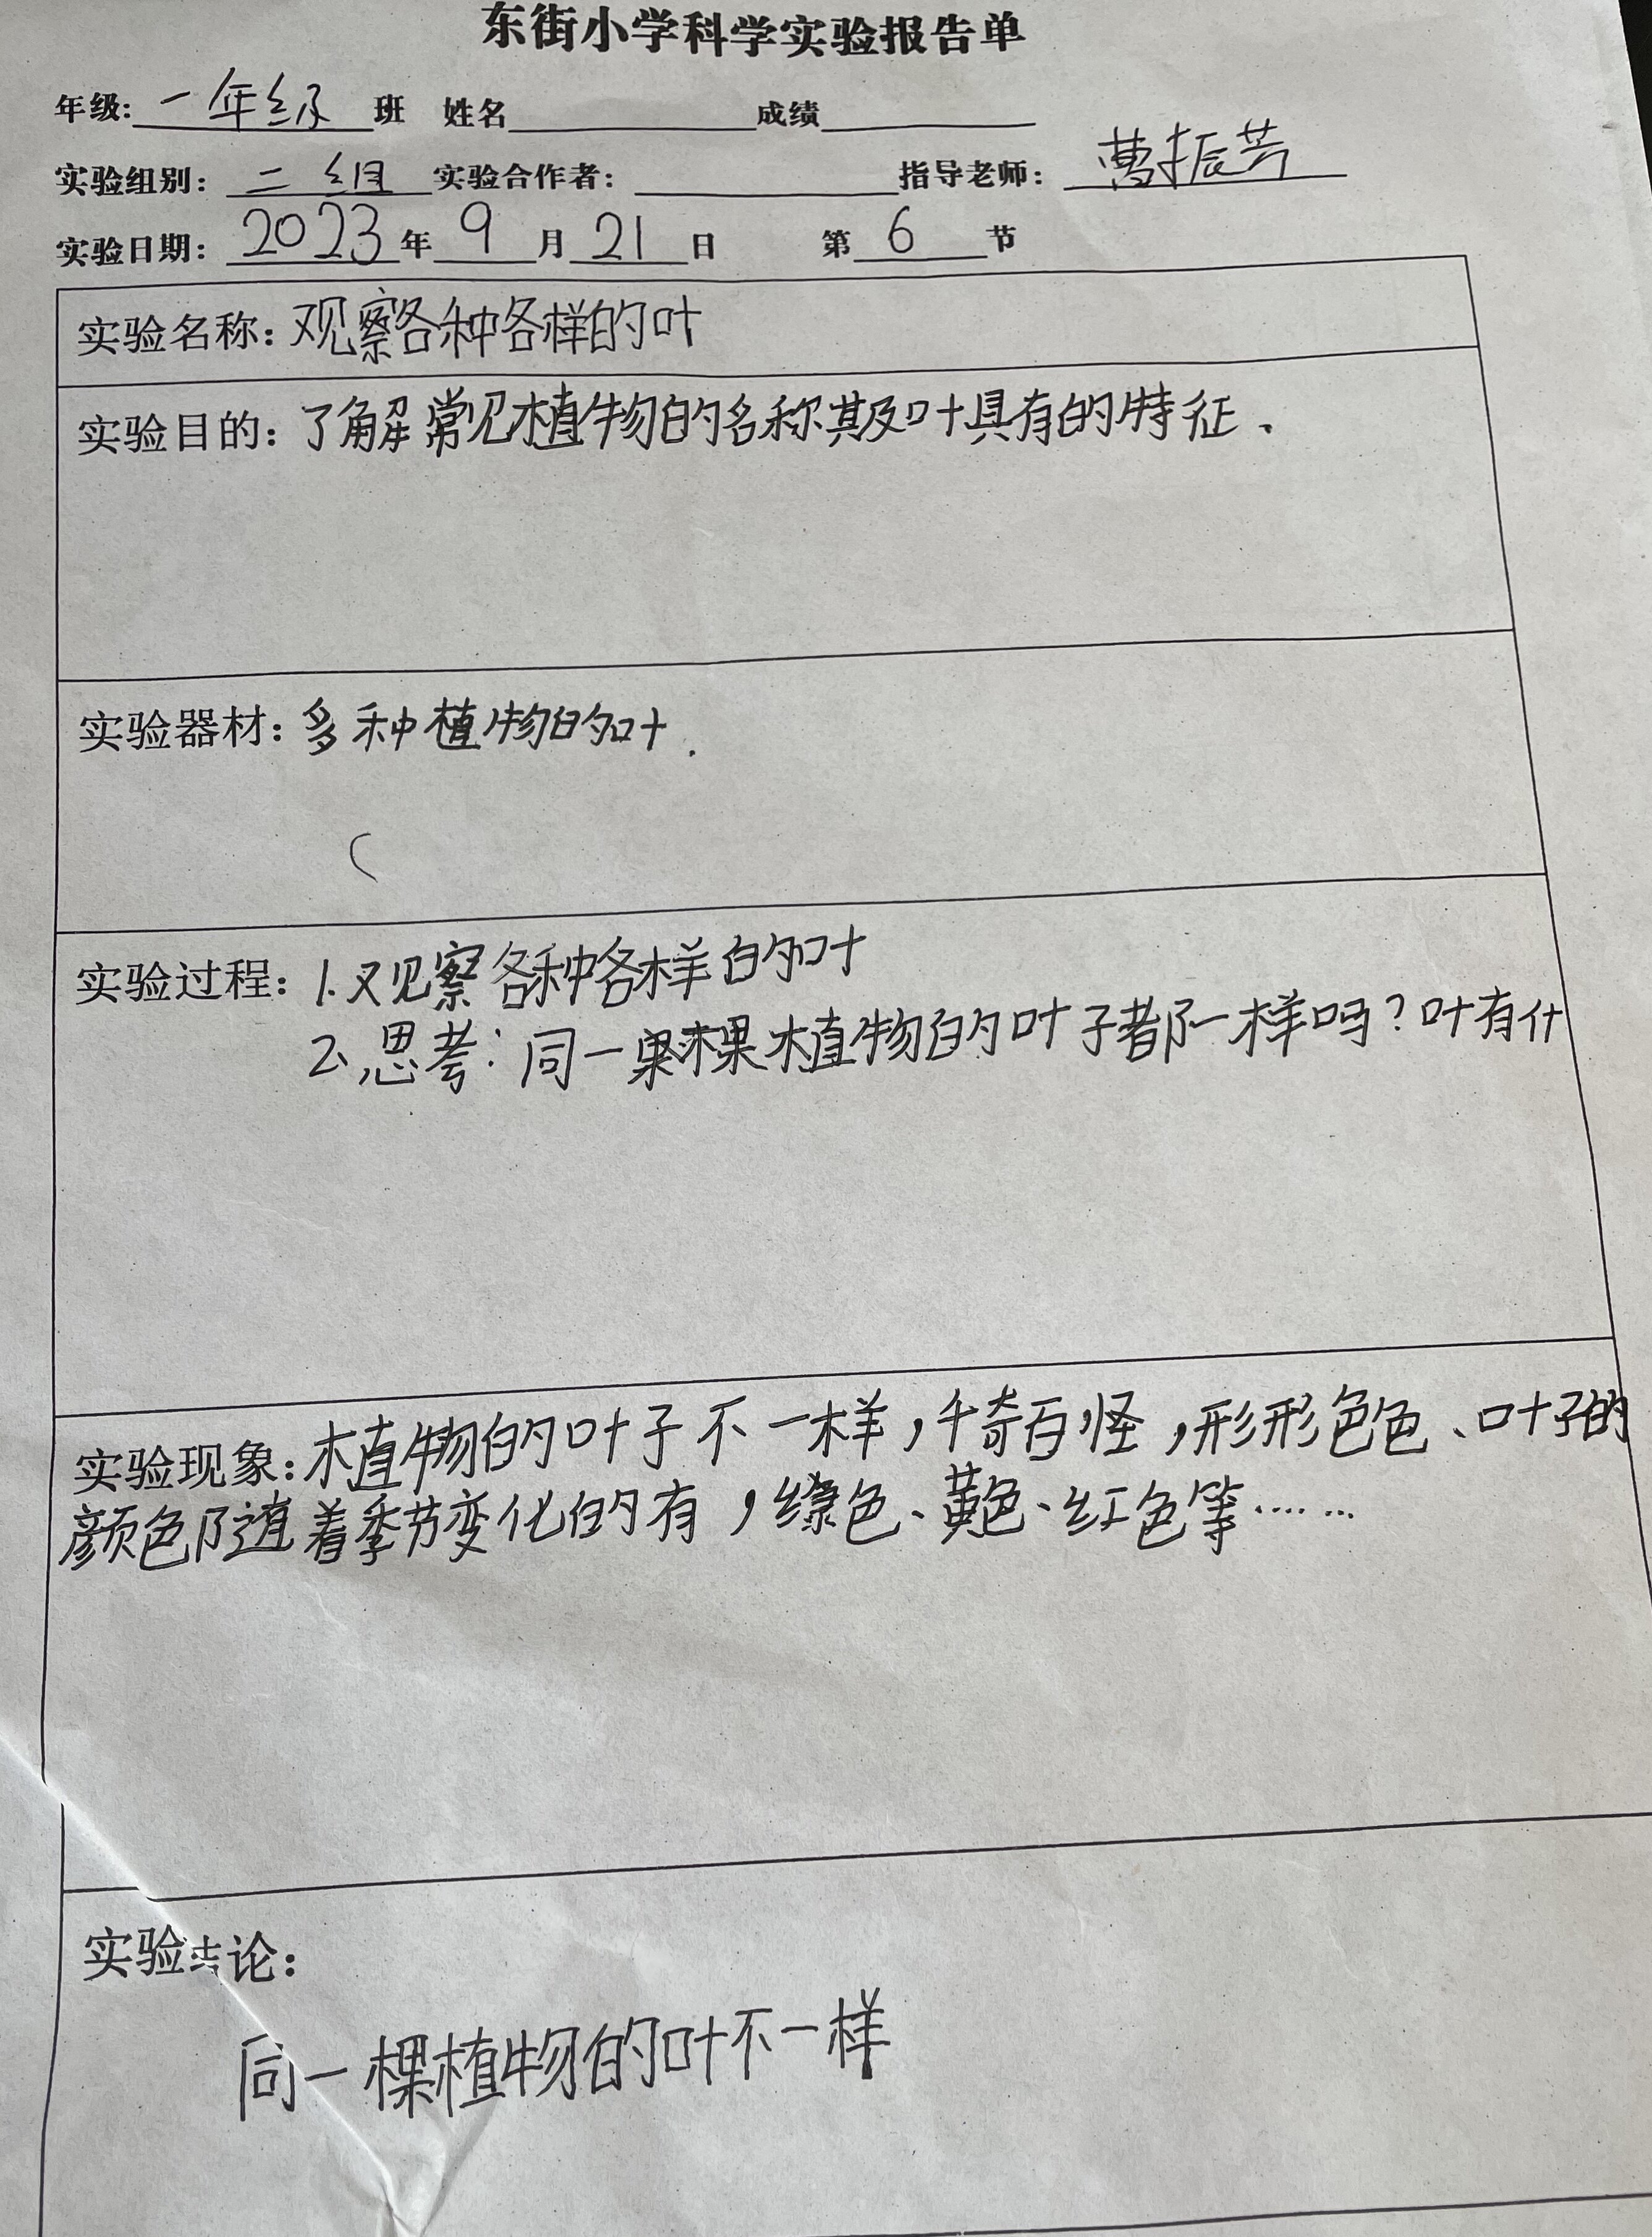 东街小学科学实验报告单
年级:一年级 班 姓名 成绩
实验组别：二组 实验合作者： 指导老师：曹振芳
实验日期：2023年9月21日 第6节
实验名称：观察各种各样的叶
实验目的：了解常见植物的名称其及叶具有的特征、
实验器材：多种植物的叶.
实验过程：1.观察各种各样的叶
2、思考：同一果棵植物的叶子都一样吗？叶有什
实验现象：植物的叶子不一样，千奇百怪，形形色色、叶子的
颜色随着季节变化的有，绿色、黄色、红色等……
实验结论：
同一棵植物的叶不一样